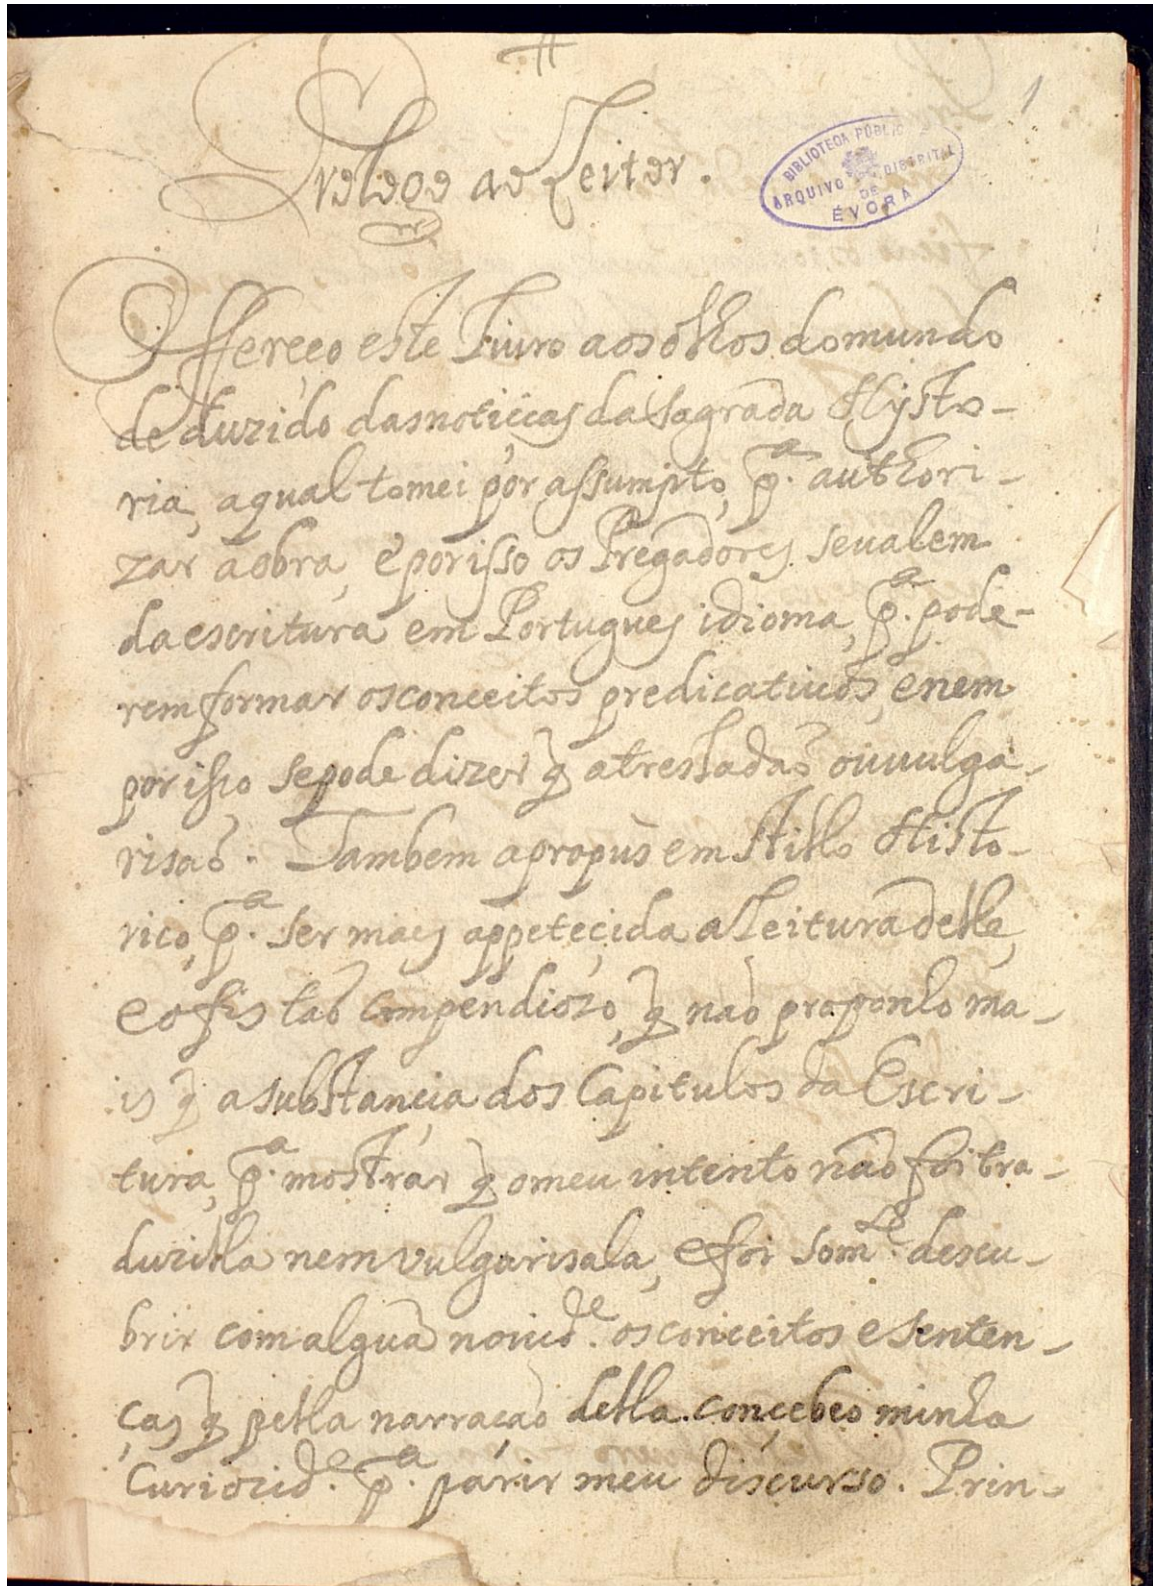 1
Prologo ao Leitor.
BIBLIOTECA PÚBLICA E
ARQUIVO DISTRITAL
DE
ÉVORA
Offereço este Liuro aos olhos do mundo
deduzido das noticias da Sagrada Hysto-
ria, a qual tomei por assumpto, p.ª authori-
zar a obra, e por isso os Pregadores se ualem
da escritura em Portugues idioma, p.ª pode-
rem formar os conceitos predicatiuos, e nem
por isso se pode dizer q̃ a tresladaõ ou uulga-
risaõ. Tambem a propus em stillo Histo-
rico, p.ª ser maes appeteçida a Leitura delle,
e o fis taõ compendiozo, q̃ naõ proponho ma-
is q̃ a substancia dos Capitulos da Escri-
tura, p.ª mostrar q̃ o meu intento não foi tra-
duzilla nem vulgarisala, e foi som.te descu-
brir com algũa nouid.e os conceitos e senten-
ças q̃ pella narraçaõ della conçebeo minha
curiozid.e p.ª parir meu discurso. Prin-